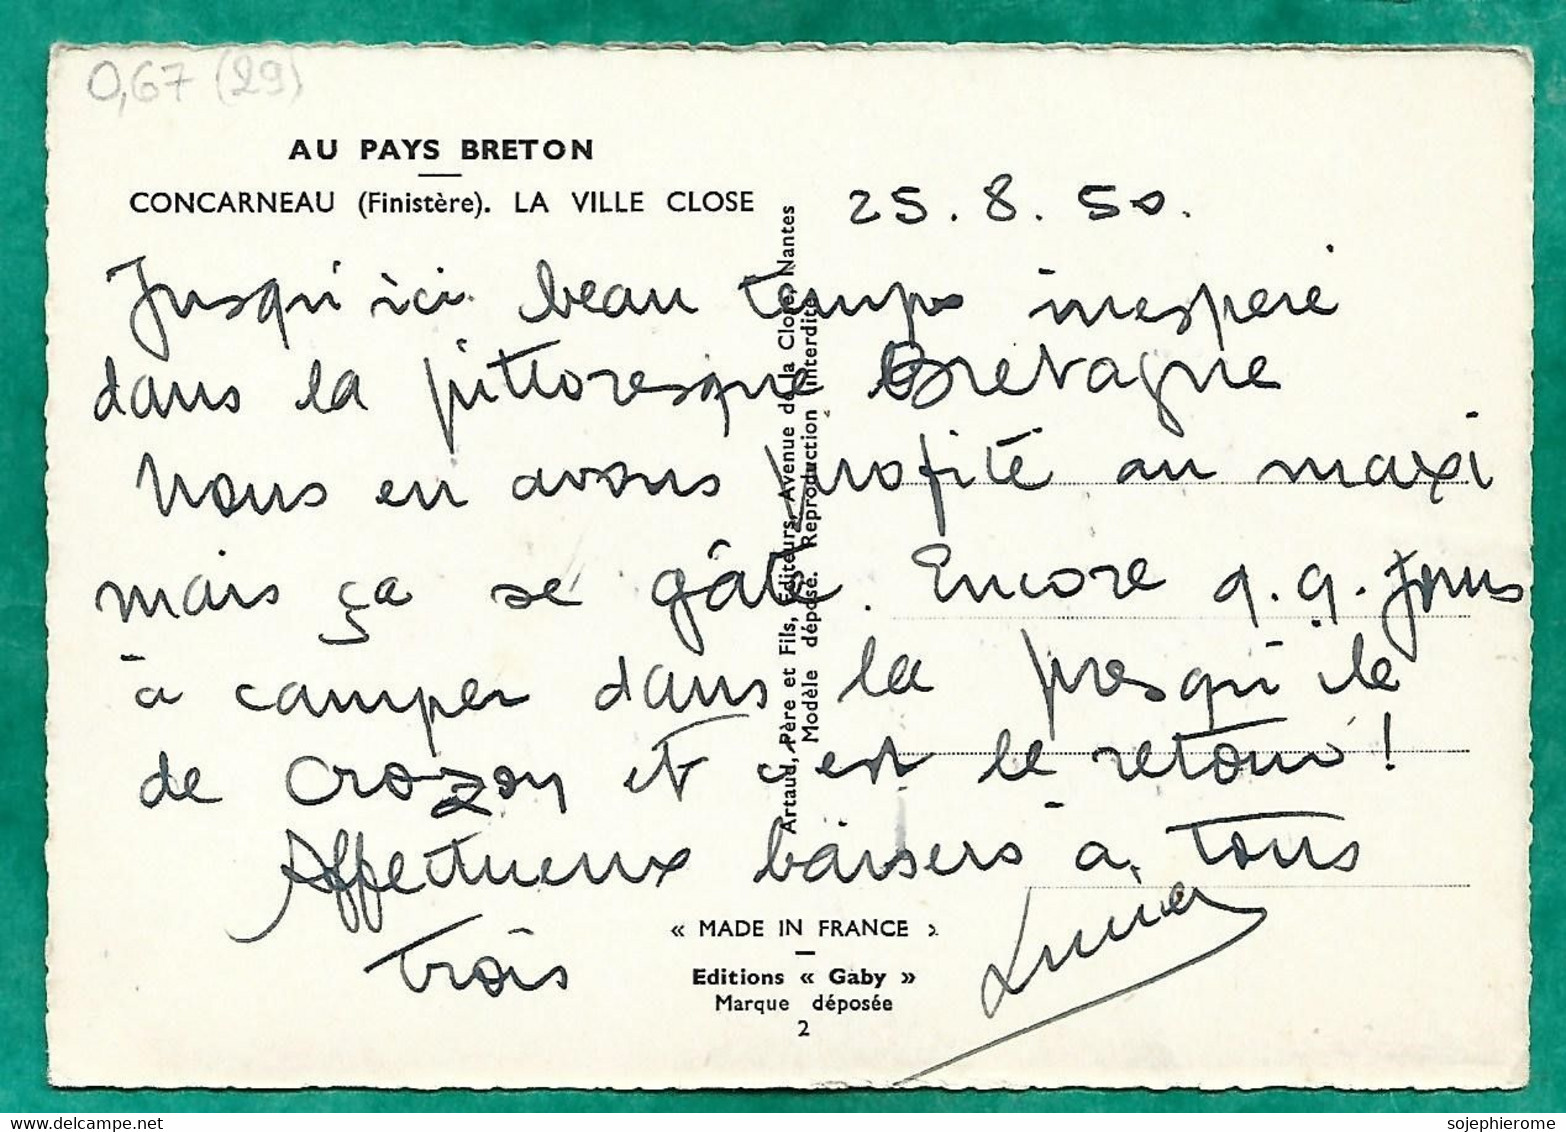 0,67 (29)
AU PAYS BRETON
CONCARNEAU (Finistère). LA VILLE CLOSE
25.8.50.
Jusqu'ici beau temps inespéré
dans la pittoresque Bretagne
Nous en avons profité au maxi
mais ça se gâte. Encore q.q. jours
à camper dans la presqu'île
de Crozon et c'est le retour !
Affectueux baisers à tous
trois
Artaud, Père et Fils, Éditeurs, Avenue de la Close, Nantes
Modèle déposé. Reproduction interdite
« MADE IN FRANCE »
Editions « Gaby »
Marque déposée
2
sojephierome